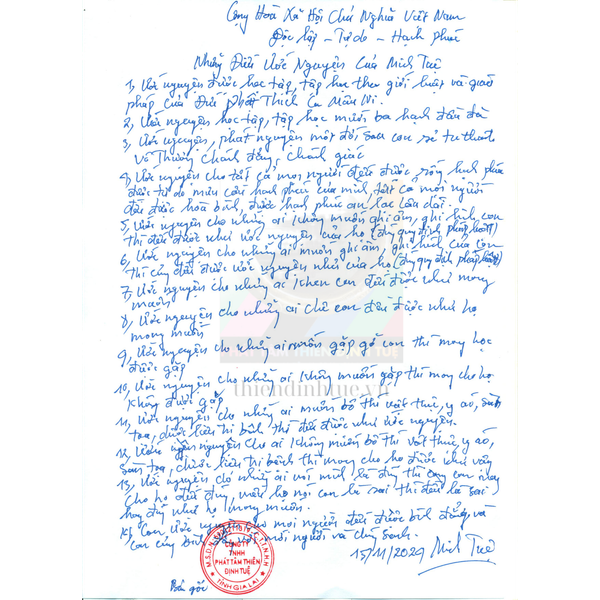 Cộng Hoà Xã Hội Chủ Nghĩa Việt Nam
Độc lập - Tự do - Hạnh phúc
Những Điều Ước Nguyện Của Minh Tuệ
1, Ước nguyện được học tập, tập học theo giới luật và giáo
pháp của Đức Phật Thích Ca Mâu Ni.
2, Ước nguyện học tập, tập học mười ba hạnh đầu đà
3, Ước nguyện, phát nguyện một đời sau con sẽ tu thành
Vô Thượng Chánh đẳng, Chánh giác
4, Ước nguyện cho tất cả mọi người đều được sống hạnh phúc
được tự do mưu cầu hạnh phúc của mình, tất cả mọi người
đều được hoà bình, được hạnh phúc an lạc lâu dài.
5, Ước nguyện cho những ai không muốn ghi âm, ghi hình con
thì đều được như ước nguyện của họ (đúng quy định pháp luật)
6, Ước nguyện cho những ai muốn ghi âm, ghi hình của con
thì cũng đều được ước nguyện như của họ (đúng quy định pháp luật)
7, Ước nguyện cho những ai khen con đều được như mong
muốn
8, Ước nguyện cho những ai chê con đều được như họ
mong muốn
9, Ước nguyện cho những ai muốn gặp gỡ con thì mong họ
được gặp
10, Ước nguyện cho những ai không muốn gặp thì mong cho họ
không được gặp
11, Ước nguyện cho những ai muốn bố thí vật thực, y áo, sàng
toạ, dược liệu trị bệnh thì đều được như ước nguyện.
12, Ước nguyện cho ai không muốn bố thí vật thực, y áo,
sàng toạ, dược liệu trị bệnh thì mong cho họ được như vậy
13, Ước nguyện có những ai nói mình là đúng thì mong con này
cho họ đều đúng, nếu họ nói con là sai thì đều là sai
hay đúng như họ mong muốn.
14, Con ước nguyện cho mọi người đều được bình đẳng, và
con cũng bình đẳng với mọi người và chúng sinh.
15/11/2024 Minh Tuệ
CÔNG TY
TNHH
PHÁT TÂM THIỀN
ĐỊNH TUỆ
TỈNH GIA LAI
Bản gốc
PHÁT TÂM THIỀN ĐỊNH TUỆ
thiendinhtue.vn